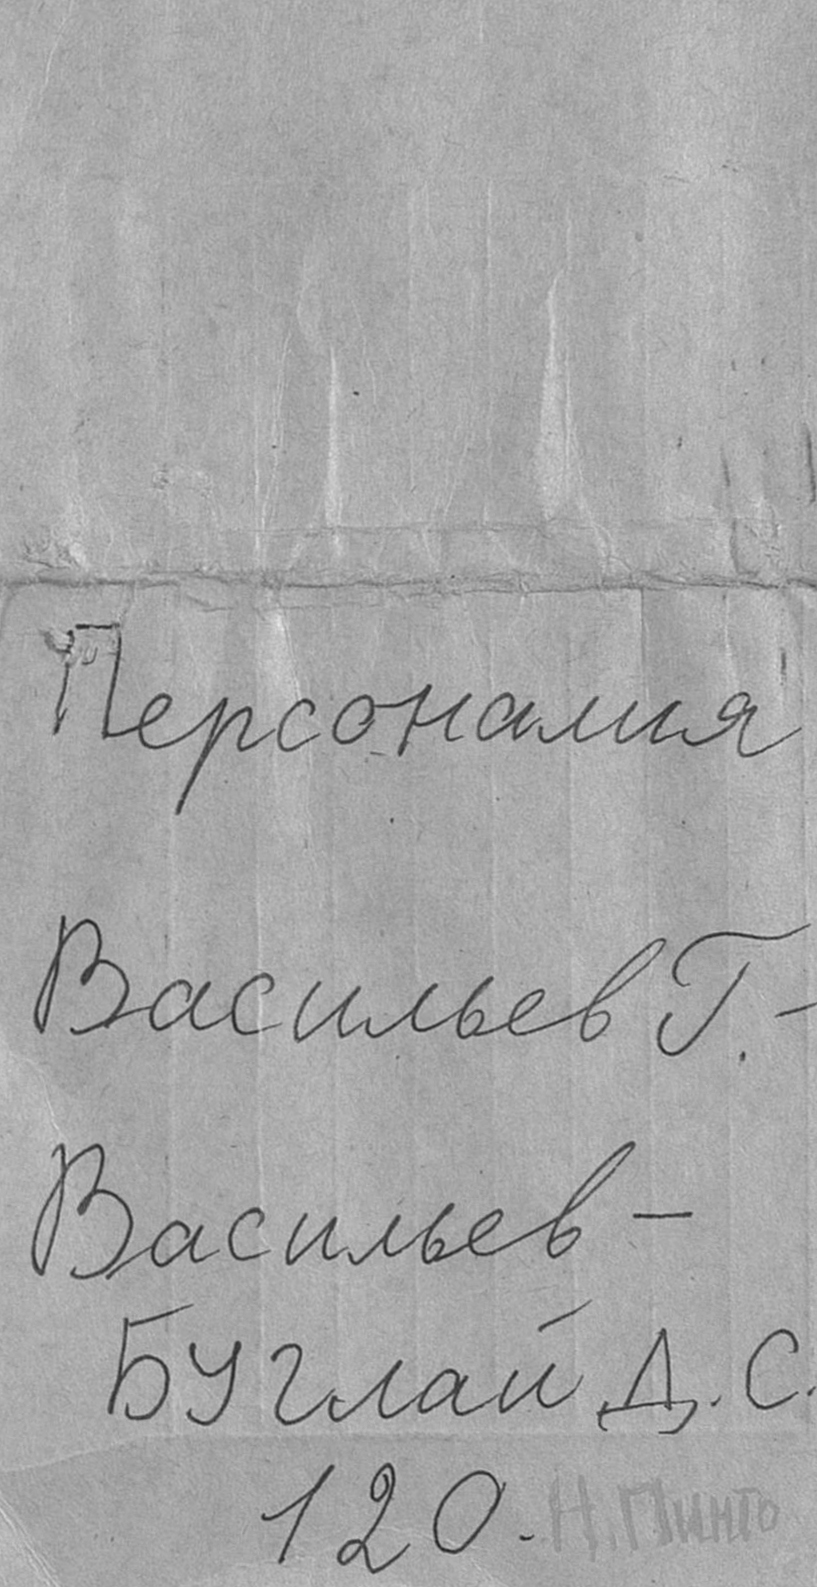 Персоналия
Васильев Г. -
Васильев -
Буглай Д. С.
120. Н. Пинто